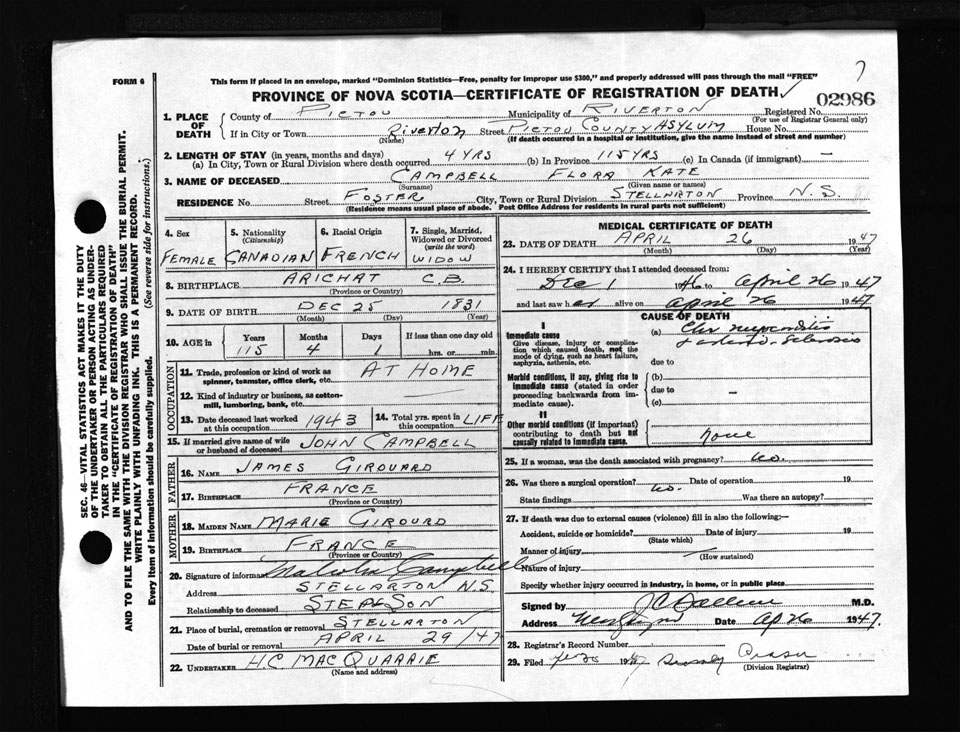 FORM 6
This form if placed in an envelope, marked "Dominion Statistics—Free, penalty for improper use $300," and properly addressed will pass through the mail "FREE"
PROVINCE OF NOVA SCOTIA—CERTIFICATE OF REGISTRATION OF DEATH
02986
1. PLACE OF DEATH
County of PICTOU Municipality of RIVERTON Registered No.
(For use of Registrar General only)
If in City or Town Riverton Street PICTOU COUNTY ASYLUM House No.
(Name) (If death occurred in a hospital or institution, give the name instead of street and number)
2. LENGTH OF STAY (in years, months and days)
(a) In City, Town or Rural Division where death occurred 4 YRS (b) In Province 115 YRS (c) In Canada (if immigrant) —
3. NAME OF DECEASED CAMPBELL FLORA KATE
(Surname) (Given name or names)
RESIDENCE No. Street FOSTER City, Town or Rural Division STELLARTON Province N.S.
(Residence means usual place of abode. Post Office Address for residents in rural parts not sufficient)
4. Sex FEMALE
5. Nationality (Citizenship) CANADIAN
6. Racial Origin FRENCH
7. Single, Married, Widowed or Divorced (write the word) WIDOW
8. BIRTHPLACE ARICHAT C.B.
(Province or Country)
9. DATE OF BIRTH DEC 25 1831
(Month) (Day) (Year)
10. AGE in Years 115 Months 4 Days 1 If less than one day old hrs. or min.
OCCUPATION
11. Trade, profession or kind of work as spinner, teamster, office clerk, etc. AT HOME
12. Kind of industry or business, as cotton-mill, lumbering, bank, etc.
13. Date deceased last worked at this occupation 1943
14. Total yrs. spent in this occupation LIFE
15. If married give name of wife or husband of deceased JOHN CAMPBELL
FATHER
16. NAME JAMES GIROUARD
17. BIRTHPLACE FRANCE
(Province or Country)
MOTHER
18. MAIDEN NAME MARIE GIROURD
19. BIRTHPLACE FRANCE
(Province or Country)
20. Signature of informant Malcolm Campbell
Address STELLARTON N.S.
Relationship to deceased STEPSON
21. Place of burial, cremation or removal STELLARTON
Date of burial or removal APRIL 29/47
22. UNDERTAKER H.C. MACQUARRIE
(Name and address)
MEDICAL CERTIFICATE OF DEATH
23. DATE OF DEATH APRIL 26 1947
(Month) (Day) (Year)
24. I HEREBY CERTIFY that I attended deceased from:
Dec 1 1946 to April 26 1947
and last saw her alive on April 26 1947
CAUSE OF DEATH
I
Immediate cause
Give disease, injury or complication which caused death, not the mode of dying, such as heart failure, asphyxia, asthenia, etc.
(a) Chr myocarditis
& arterio-sclerosis
due to
Morbid conditions, if any, giving rise to immediate cause (stated in order proceeding backwards from immediate cause).
(b)
due to —
(c)
II
Other morbid conditions (if important) contributing to death but not causally related to immediate cause.
none
25. If a woman, was the death associated with pregnancy? no.
26. Was there a surgical operation? no. Date of operation 19
State findings Was there an autopsy?
27. If death was due to external causes (violence) fill in also the following:—
Accident, suicide or homicide? Date of injury 19
(State which)
Manner of injury
(How sustained)
Nature of injury
Specify whether injury occurred in industry, in home, or in public place
Signed by M.D.
Address Date Ap 26 1947.
28. Registrar's Record Number
29. Filed 1947 Fraser
(Division Registrar)
SEC. 46—VITAL STATISTICS ACT MAKES IT THE DUTY
OF THE UNDERTAKER OR PERSON ACTING AS UNDER-
TAKER TO OBTAIN ALL THE PARTICULARS REQUIRED
IN THE "CERTIFICATE OF REGISTRATION OF DEATH"
AND TO FILE THE SAME WITH THE DIVISION REGISTRAR WHO SHALL ISSUE THE BURIAL PERMIT.
WRITE PLAINLY WITH UNFADING INK. THIS IS A PERMANENT RECORD.
Every item of information should be carefully supplied. (See reverse side for instructions.)